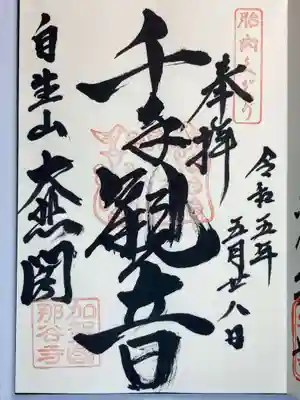 胎内くぐり
奉拝
令和五年
五月廿八日
千手観音
自生山
大悲閣
加賀國
那谷寺